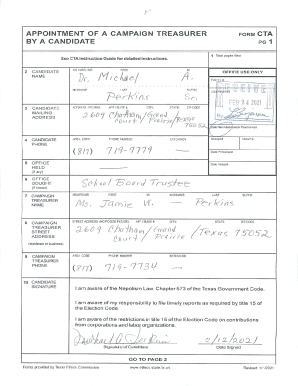 APPOINTMENT OF A CAMPAIGN TREASURER BY A CANDIDATE
FORM CTA
PG 1
See CTA Instruction Guide for detailed instructions.
1 Total pages filed:
2 CANDIDATE NAME
MS / MRS / MR FIRST MI
Dr. Michael A.
NICKNAME LAST SUFFIX
Perkins Sr.
OFFICE USE ONLY
FEB 24 2021
3 CANDIDATE MAILING ADDRESS
ADDRESS / PO BOX; APT / SUITE #; CITY; STATE; ZIP CODE
2609 Chatham / Grand / Texas
Court / Prairie / 75052
4 CANDIDATE PHONE
AREA CODE PHONE NUMBER EXTENSION
(817) 719-9779
Date Processed
5 OFFICE HELD (if any)
Date Imaged
6 OFFICE SOUGHT (if known)
School Board Trustee
7 CAMPAIGN TREASURER NAME
MS / MRS / MR FIRST MI NICKNAME LAST SUFFIX
Ms. Jamie W. - Perkins
8 CAMPAIGN TREASURER STREET ADDRESS
(residence or business)
STREET ADDRESS (NO PO BOX PLEASE); APT / SUITE #; CITY; STATE; ZIP CODE
2609 Chatham / Grand / Texas 75052
Court / Prairie
9 CAMPAIGN TREASURER PHONE
AREA CODE PHONE NUMBER EXTENSION
(817) 719-7734
10 CANDIDATE SIGNATURE
I am aware of the Nepotism Law, Chapter 573 of the Texas Government Code.
I am aware of my responsibility to file timely reports as required by title 15 of the Election Code.
I am aware of the restrictions in title 15 of the Election Code on contributions from corporations and labor organizations.
Signature of Candidate
Date Signed
GO TO PAGE 2
Forms provided by Texas Ethics Commission
www.ethics.state.tx.us